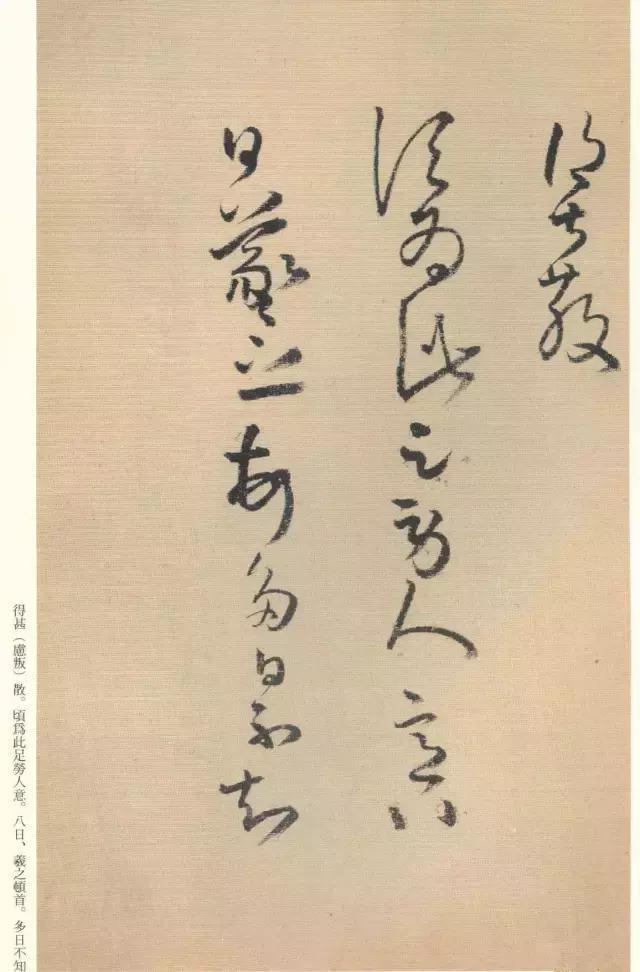 得甚散
頃為此足勞人意八
日羲之頓首多日不知
得甚（慮叛）散。頃爲此足勞人意。八日、羲之頓首。多日不知